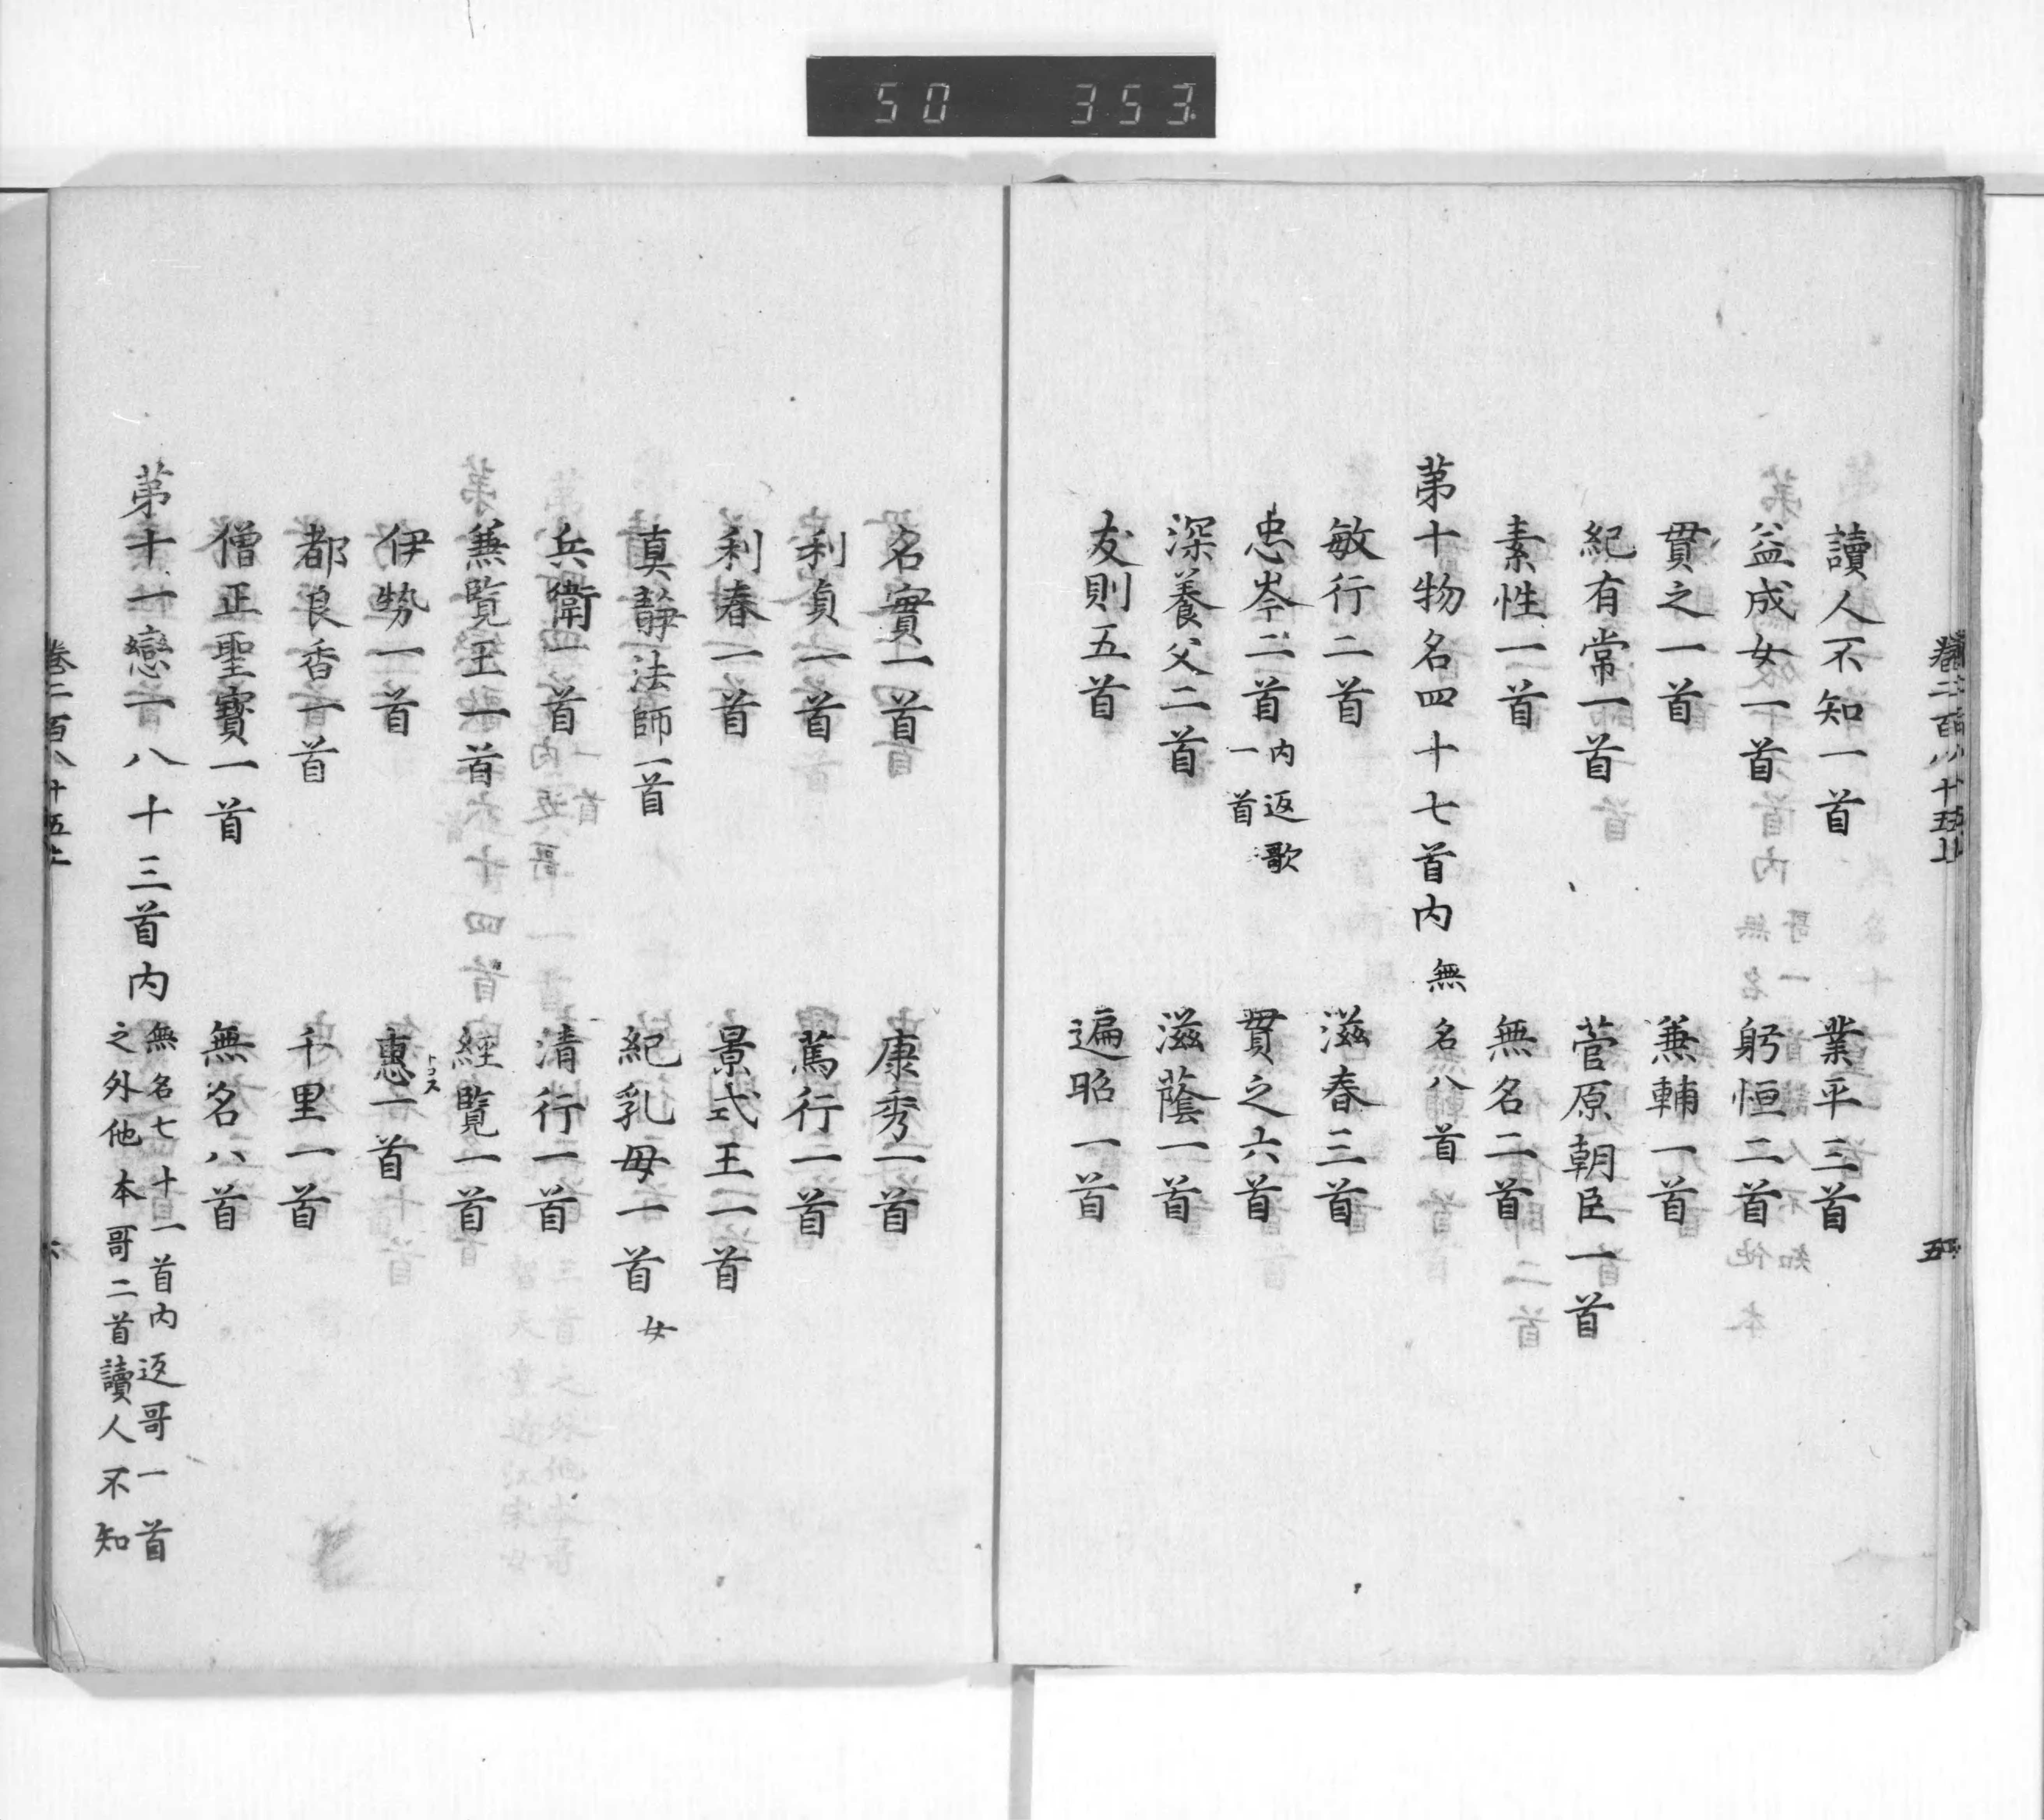 50 353
卷二百八十五上 五
讀人不知一首 業平三首
益成女一首 躬恒二首
貫之一首 兼輔一首
紀有常一首 菅原朝臣一首
素性一首 無名二首
第十物名四十七首内無名八首
敏行二首 滋春三首
忠岑二首内返歌一首 貫之六首
深養父二首 滋蔭一首
友則五首 遍昭一首
名實一首 康秀一首
利貞一首 篤行一首
利春一首 景式王一首
真静法師一首 紀乳母一首女
兵衛一首 清行一首
兼覧王一首 經覧一首
伊勢一首 惠一首
都良香一首 千里一首
僧正聖寶一首 無名八首
第十一戀一八十三首内無名七十一首内返哥一首
之外他本哥二首讀人不知
卷二百八十五上 六